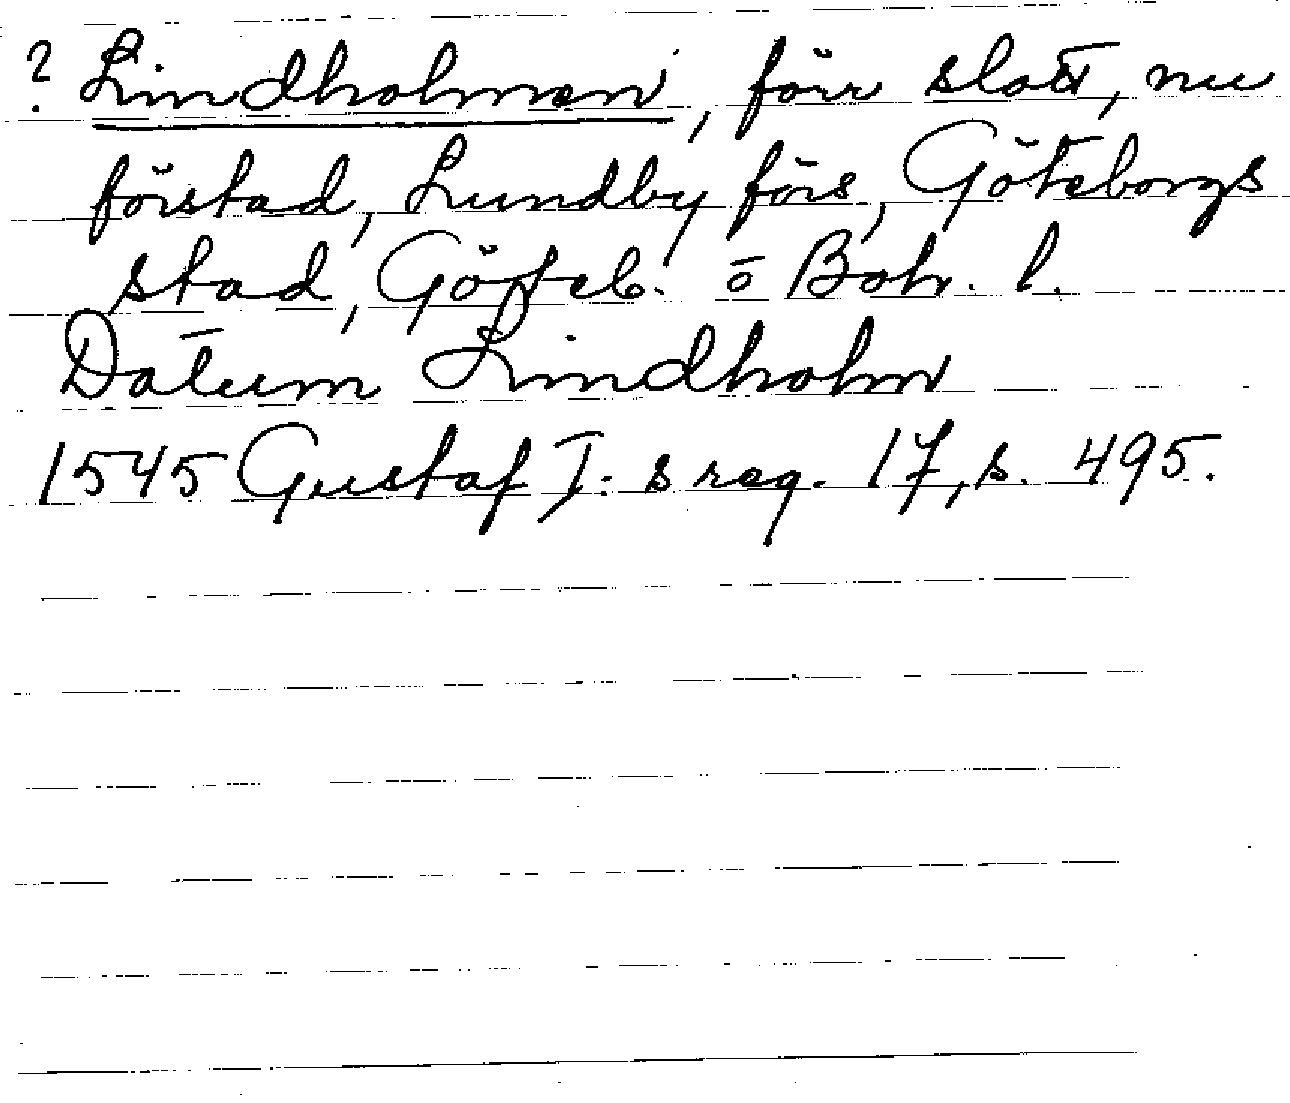 ? Lindholmen, förr slott, nu
förstad, Lundby förs, Göteborgs
stad, Göteb. o Boh. l.
Datum Lindholm
1545 Gustaf I: s reg. 17, s. 495.